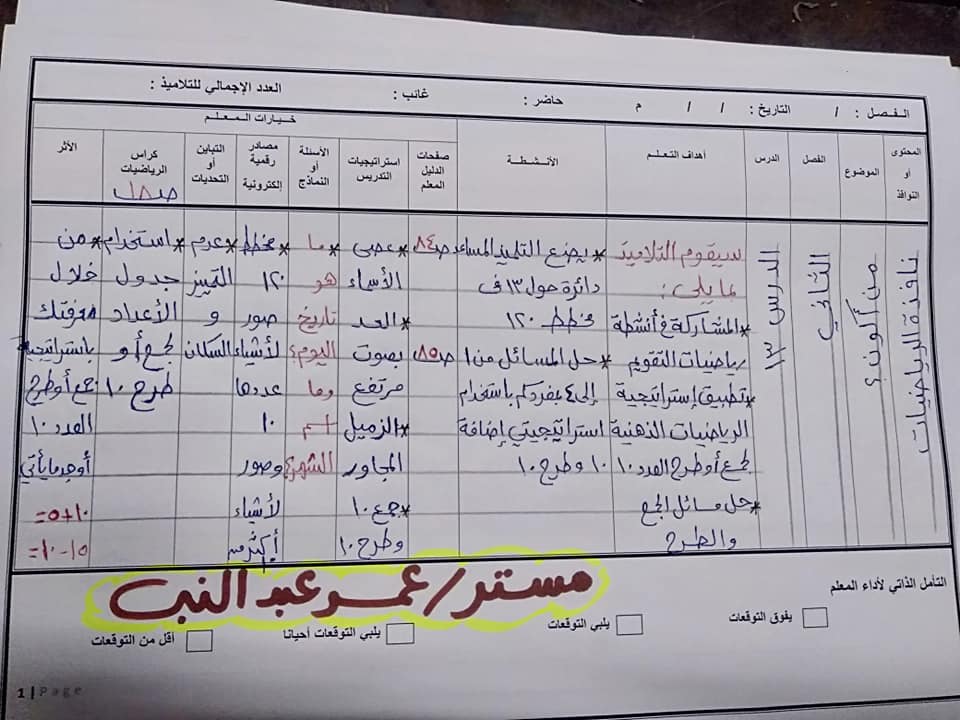 الفصل : / التاريخ : / / م حاضر : غائب : العدد الإجمالي للتلاميذ :
خيارات المعلم
المحتوى أو النوافذ
الموضوع
الفصل
الدرس
أهداف التعلم
الأنشطة
صفحات الدليل المعلم
استراتيجيات التدريس
الأسئلة أو النماذج
مصادر رقمية إلكترونية
التباين أو التحديات
كراس الرياضيات
الأثر
نافذة الرياضيات
من أكون؟
الثاني
الدرس ١٣
سيقوم التلاميذ
بما يلى:
*المشاركة فى أنشطة
رياضيات التقويم
*تطبيق إستراتيجية
الرياضيات الذهنية
لجمع أو طرح العدد ١٠
*حل مسائل الجمع
والطرح
* يضع التلميذ المساعد
دائرة حول ١٣ فى
مخطط ١٢٠
* حل المسائل من ١
إلى ٤ بمفردكم باستخدام
استراتيجيتي إضافة
١٠ وطرح ١٠
ص٨٤
ص٨٥
* عصى
الأسماء
*العد
بصوت
مرتفع
*الزميل
المجاور
*جمع ١٠
وطرح ١٠
* ما
هو
تاريخ
اليوم؟
وما
اسم
الشهر؟
* مخطط
١٢٠
صور
لأشياء
عددها
١٠
وصور
لأشياء
أكثر من
* عدم
التميز
و
السكان
* استخدام
جدول
الأعداد
لجمع أو
طرح ١٠
* من
خلال
معرفتك
باستراتيجية
جمع أو طرح
العدد ١٠
أوجد ما يأتي
١٠+٥=
١٥-١٠=
مستر/عمر عبد النبى
التأمل الذاتي لأداء المعلم
يفوق التوقعات
يلبي التوقعات
يلبي التوقعات أحيانا
أقل من التوقعات
1 | Page